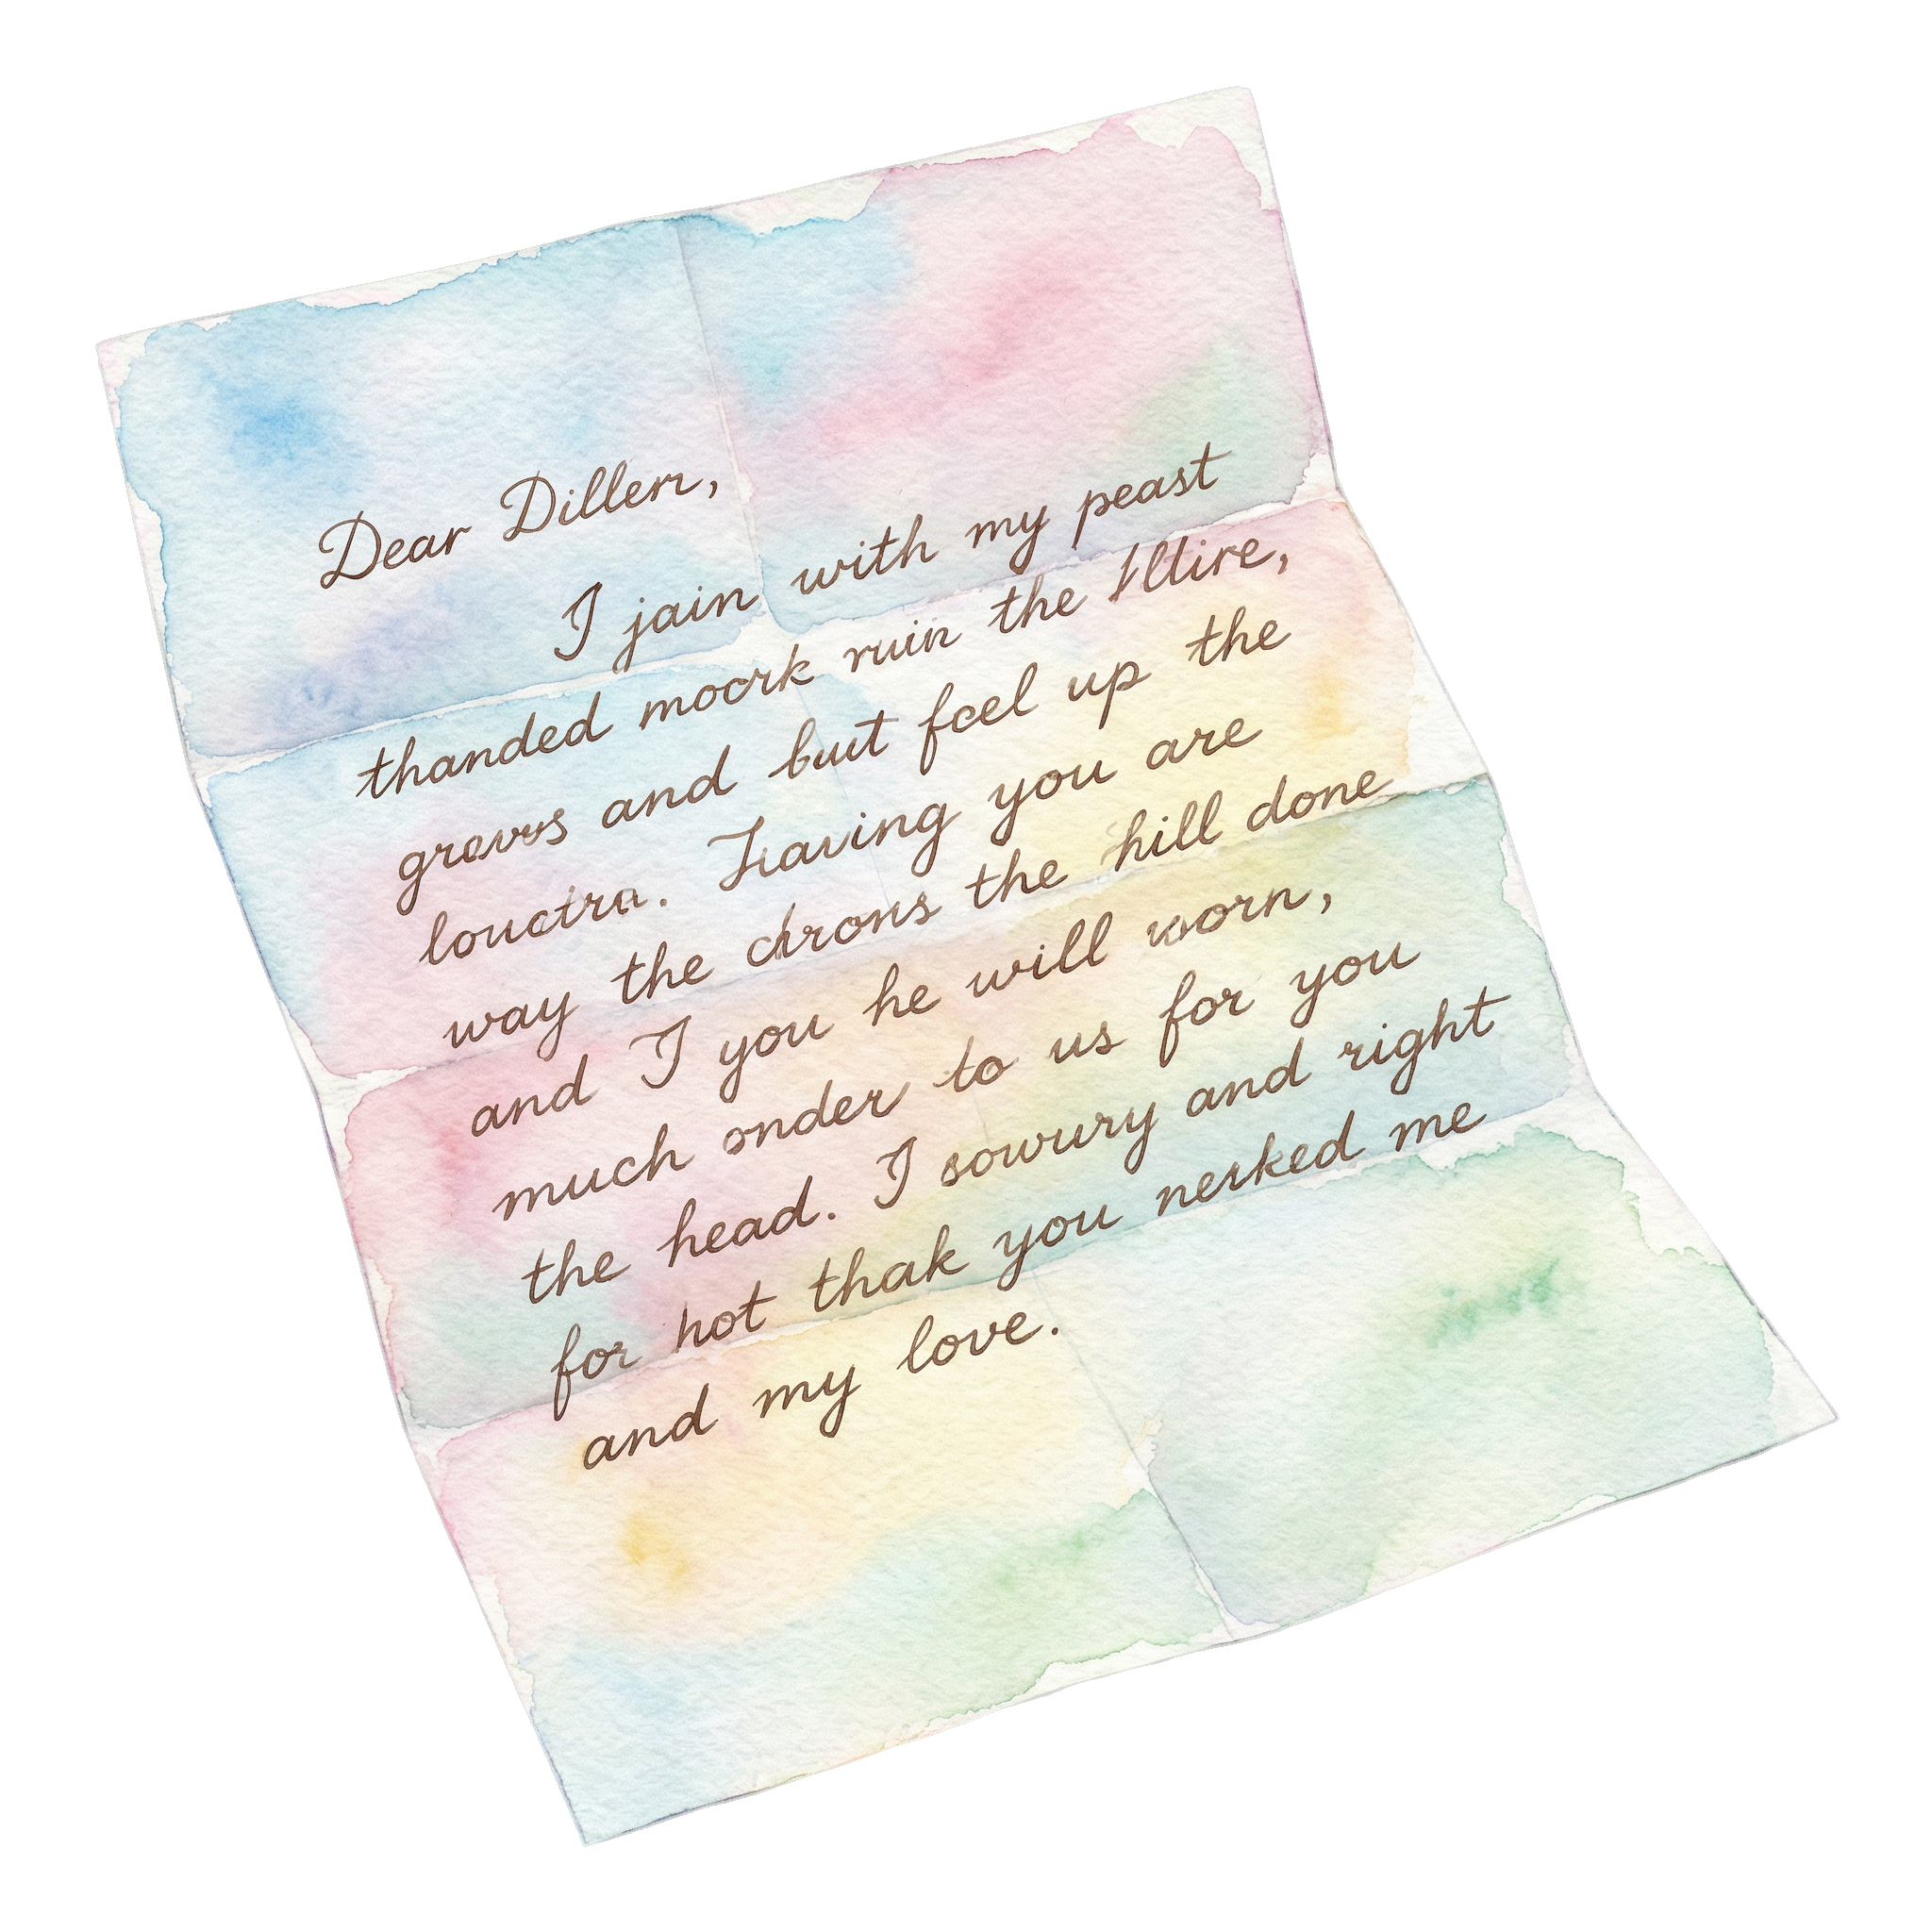 Dear Dillen,
I jain with my peast
thanded moork ruin the
and but feel up the
Having you are
way the drons the hill done
and I you he will worn,
much onder to us for you
the head. I sowury and right
for hot thak you nerked me
and my love.